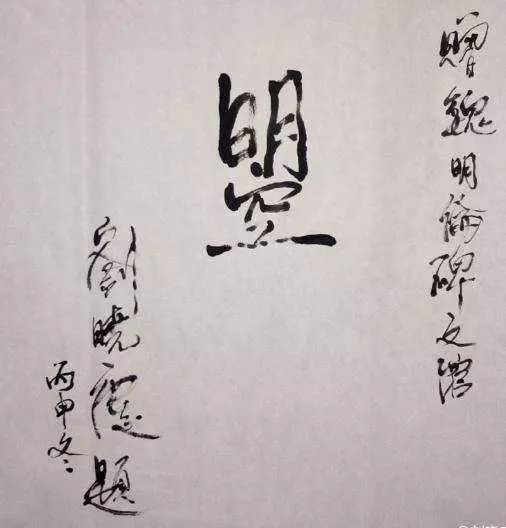 贈魏明倫碑文
曌
劉曉慶題
丙申冬